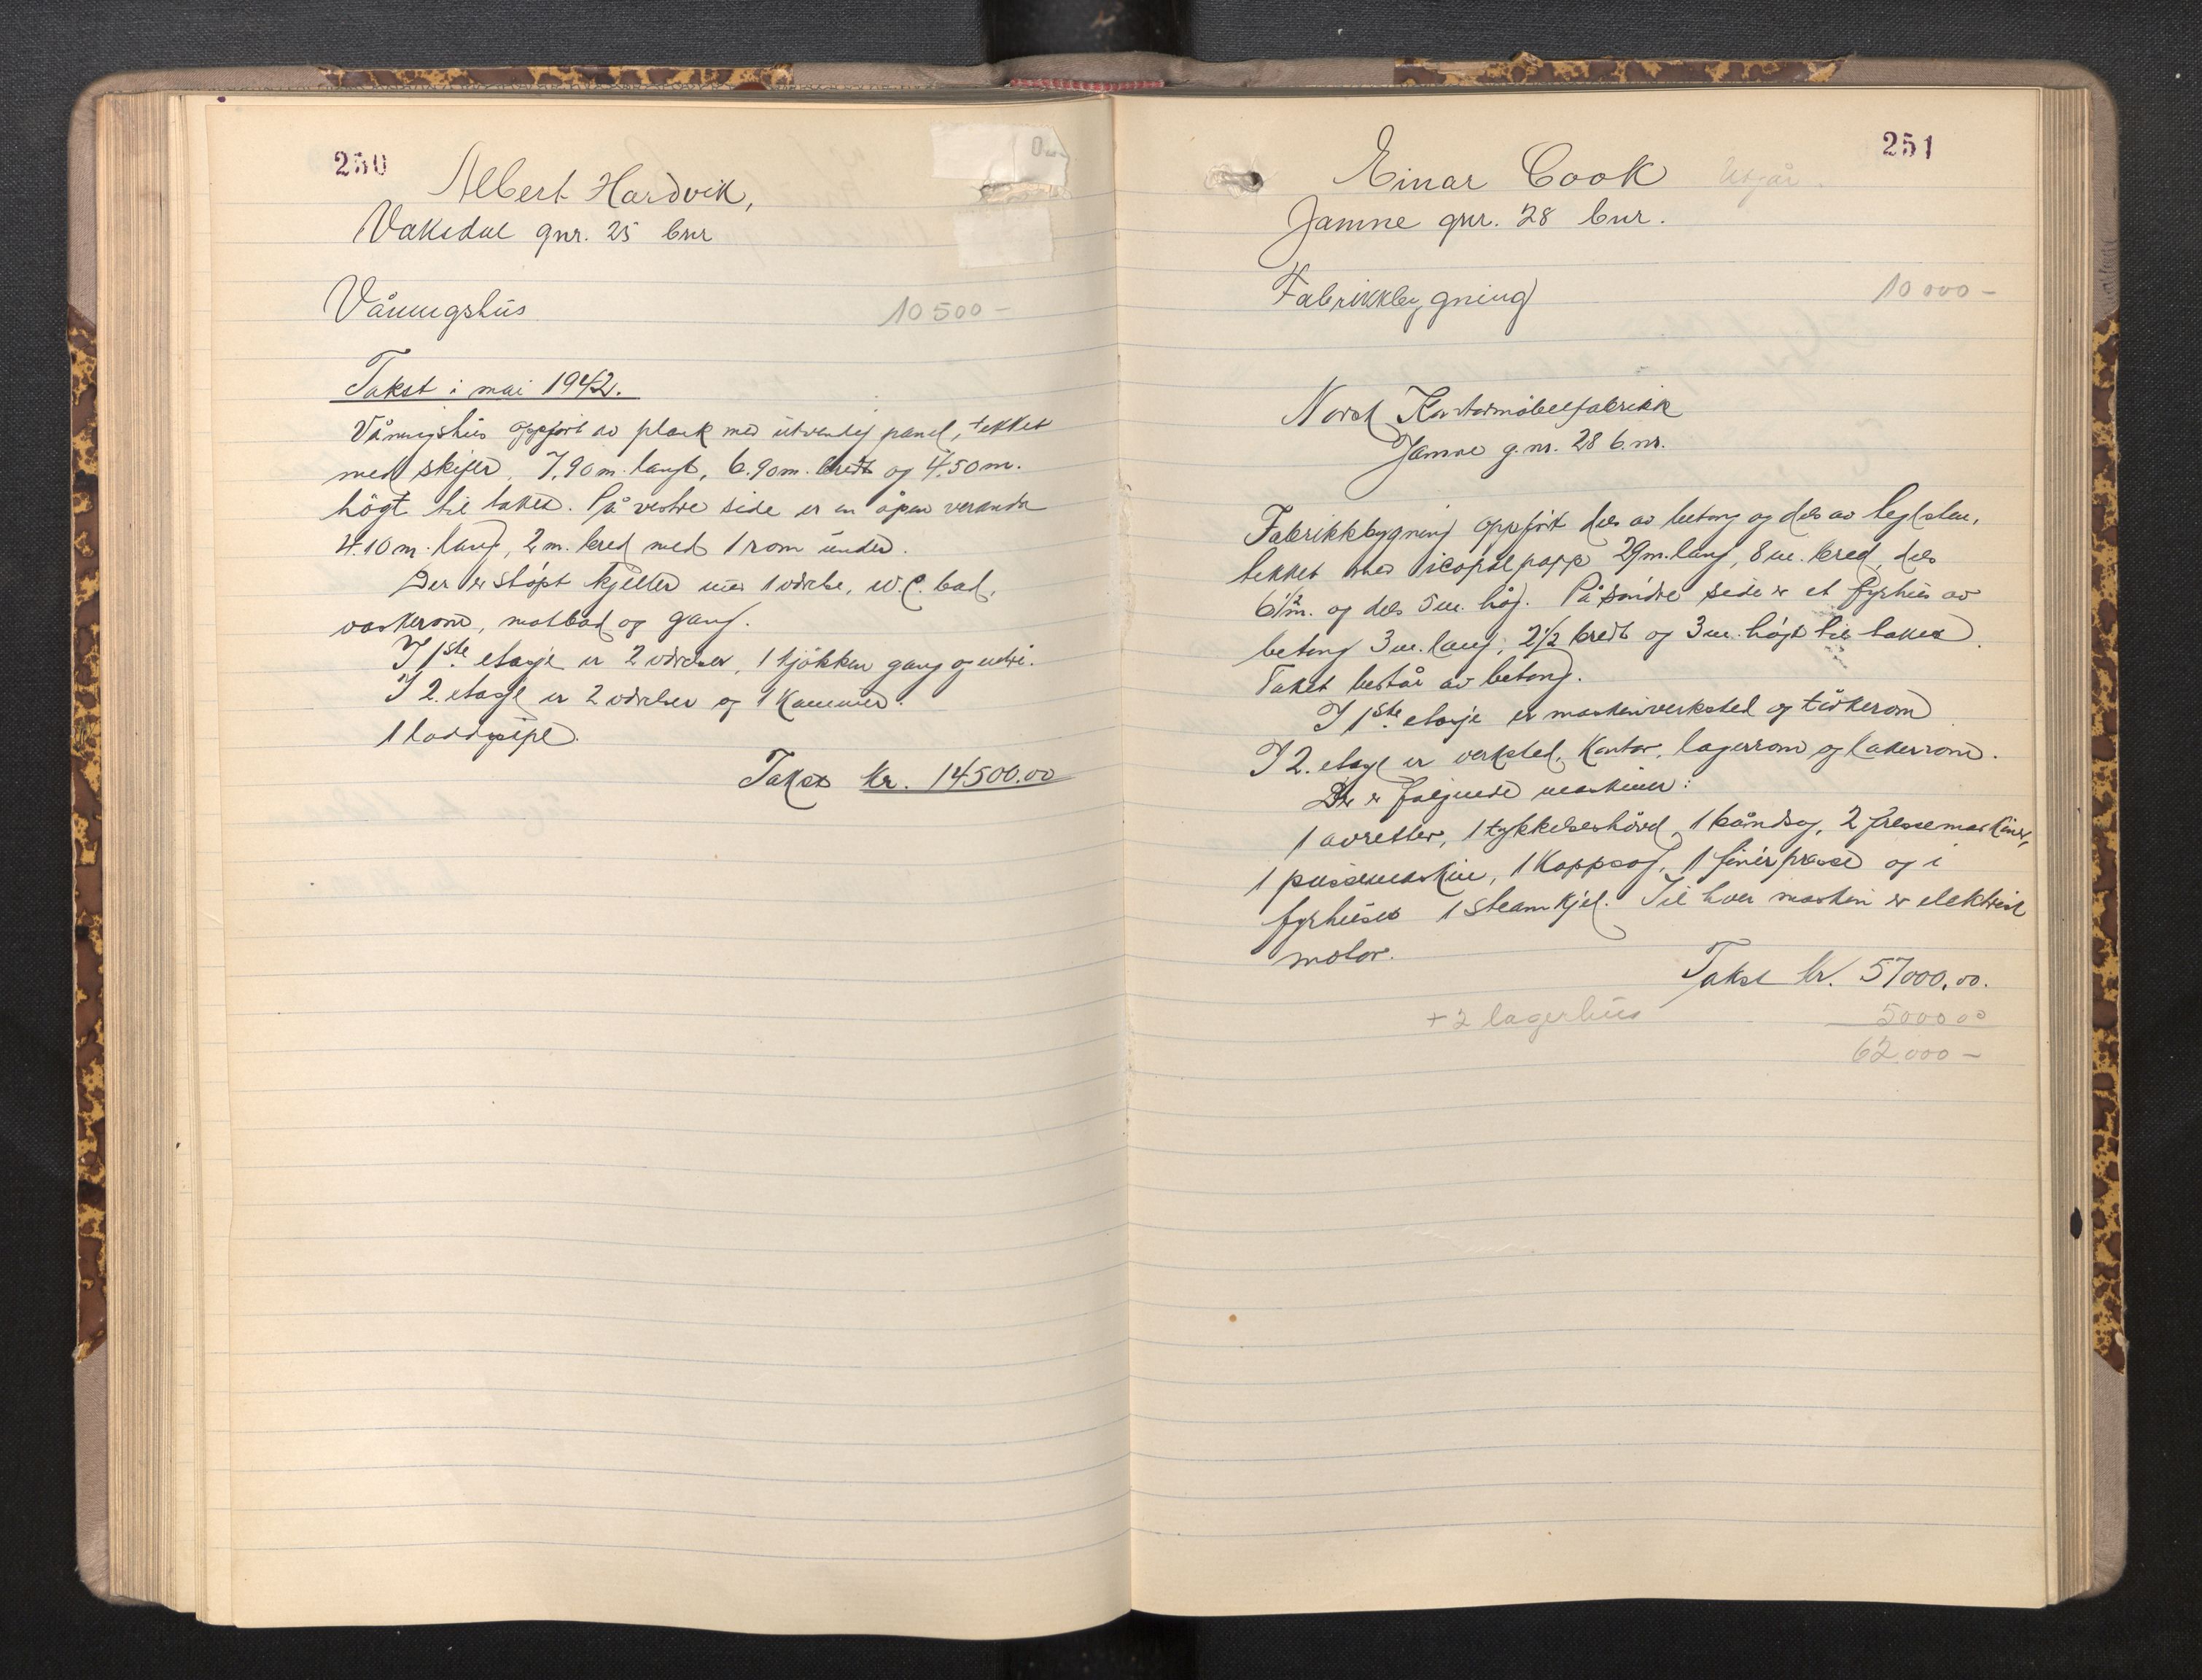 250
Albert Hardvik,
Vaksdal gnr. 25 bnr
Våningshus 10500-
Takst i mai 1942.
Våningshus oppfört av plank med utvendig panel, tekket
med skifer, 7,90 m. langt, 6.90 m. bredt og 4.50 m.
högt til taket. På vestre side er en åpen veranda
4.10 m. lang, 2 m. bred med 1 rom under.
Der er støpt kjeller med 1 værelse, W.C. bad,
vaskerom, matbod og gang.
I 1ste etasje er 2 værelser, 1 kjökken gang og entre.
I 2. etasje er 2 værelser og 1 Kammer.
1 loddpipe.
Takst kr. 14500.00
251
Einar Cook Utgår.
Jamne gnr. 28 bnr.
Fabrikkbygning 10 000-
Norsk Kontormöbelfabrikk
Jamne g.nr. 28 b.nr.
Fabrikkbygning oppfört dels av betong og dels av teglsten,
tekket med icopalpapp 29 m. lang, 8 m. bred, dels
6 1/2 m. og dels 5 m. høg. På söndre side er et fyrhus av
betong 3 m. lang, 2 1/2 bredt og 3 m. högt til taket.
Taket består av betong.
I 1ste etasje er maskinverksted og törkerom
I 2. etasje er verksted, Kontor, lagerrom og lakerrom.
Der er følgende maskiner:
1 avretter, 1 tykkelseshövel, 1 båndsag, 2 fresemaskiner,
1 pussemaskin, 1 Kappsag, 1 finérpresse og i
fyrhuset 1 steamkjel. Til hver maskin er elektrisk
motor.
Takst kr. 57000.00.
+ 2 lagerhus 5000 00
62.000-